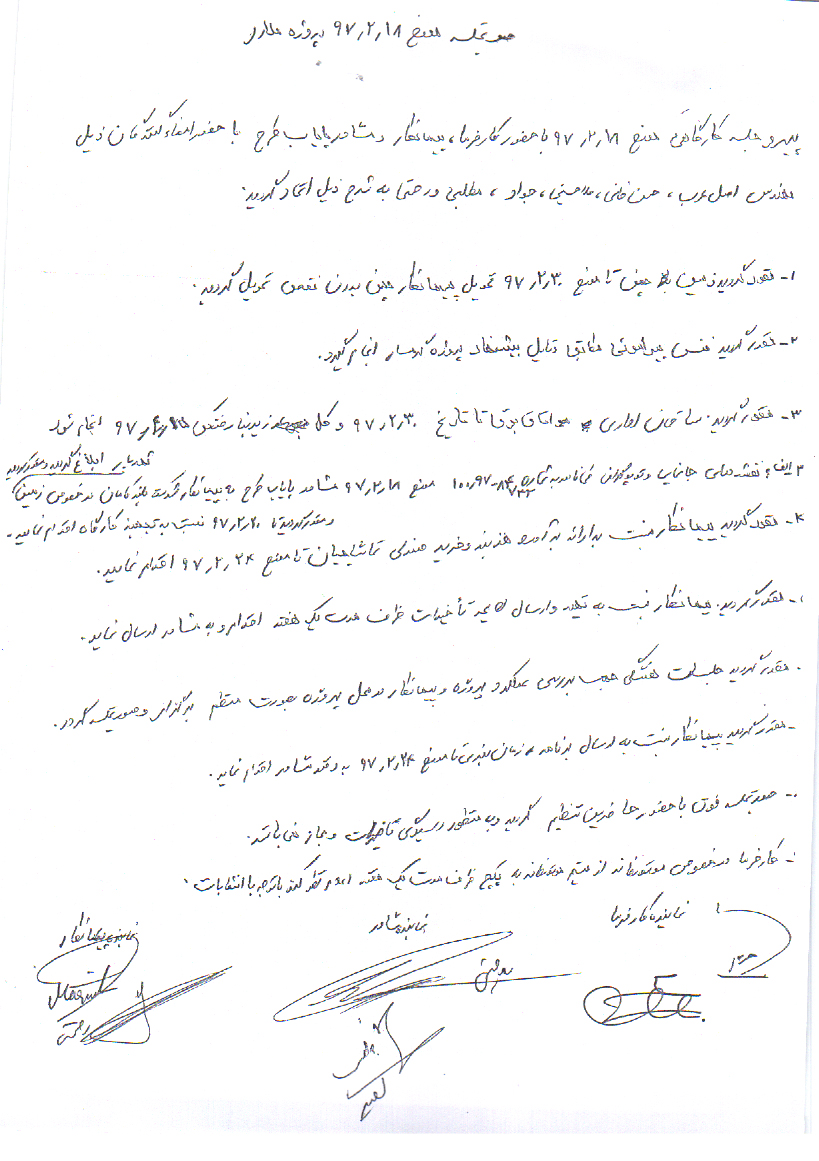 صورتجلسه مورخ ۹۷٫۲٫۱۸ پروژه
پیرو جلسه کارگاهی مورخ ۹۷٫۲٫۱۸ با حضور کارفرما، پیمانکار و مشاور پایاب طرح با حضور امضاء کنندگان ذیل
مهندس اصل عرب، حسن خانی، ملاحسینی، جواد، مطلبی و رحتمی به شرح ذیل اتخاذ گردید:
۱- مقرر گردید زمین چمن تا مورخ ۹۷٫۲٫۳۰ تحویل پیمانکار چمن بدون نقص تحویل گردد.
۲- مقرر گردید فنس پیرامونی مطابق دتایل پیشنهاد پروژه گرمسار انجام گیرد.
۳- مقرر گردید. ساختمان اداری و اتاق برق تا تاریخ ۹۷٫۲٫۳۰ و کل زیرنبار رختکن انجام شود
۳ الف- نقشه های جانمایی و توپوگرافی طی نامه به شماره مورخ ۹۷٫۲٫۱۸ مشاور پایاب طرح به پیمانکار در خصوص زمین
تحویل و ابلاغ گردید و مقرر گردید
و مقرر گردید تا ۹۷٫۲٫۲۰ نسبت به تجهیز کارگاه اقدام نمایید.
۴- مقرر گردید پیمانکار نسبت به ارائه برآورد هزینه و خرید صندلی تماشاچیان تا مورخ ۹۷٫۲٫۲۴ اقدام نمایید.
- مقرر گردید. پیمانکار نسبت به تهیه و ارسال لایحه تأخیرات ظرف مدت یک هفته اقدام و به مشاور ارسال نماید.
- مقرر گردید جلسات هفتگی جهت بررسی عملکرد پروژه و پیمانکار در محل پروژه بصورت منظم برگزار و صورتجلسه گردد.
- مقرر گردید پیمانکار نسبت به ارسال برنامه زمان بندی تا مورخ ۹۷٫۲٫۲۴ به دفتر مشاور اقدام نماید.
- صورتجلسه فوق با حضور حاضرین تنظیم گردید و به منظور رسیدگی تأخیرات و مجاز نمی باشد.
- کارفرما در خصوص موتورخانه از سیستم موتورخانه به پکیج ظرف مدت یک هفته اعلام نظر کند با توجه با انتخابات.
نماینده کارفرما
نماینده مشاور
نماینده پیمانکار